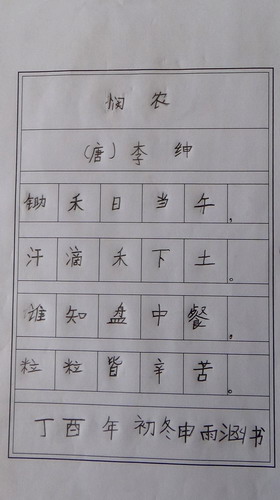 悯农
(唐)李绅
锄禾日当午,
汗滴禾下土。
谁知盘中餐,
粒粒皆辛苦。
丁酉年初冬申雨涵书